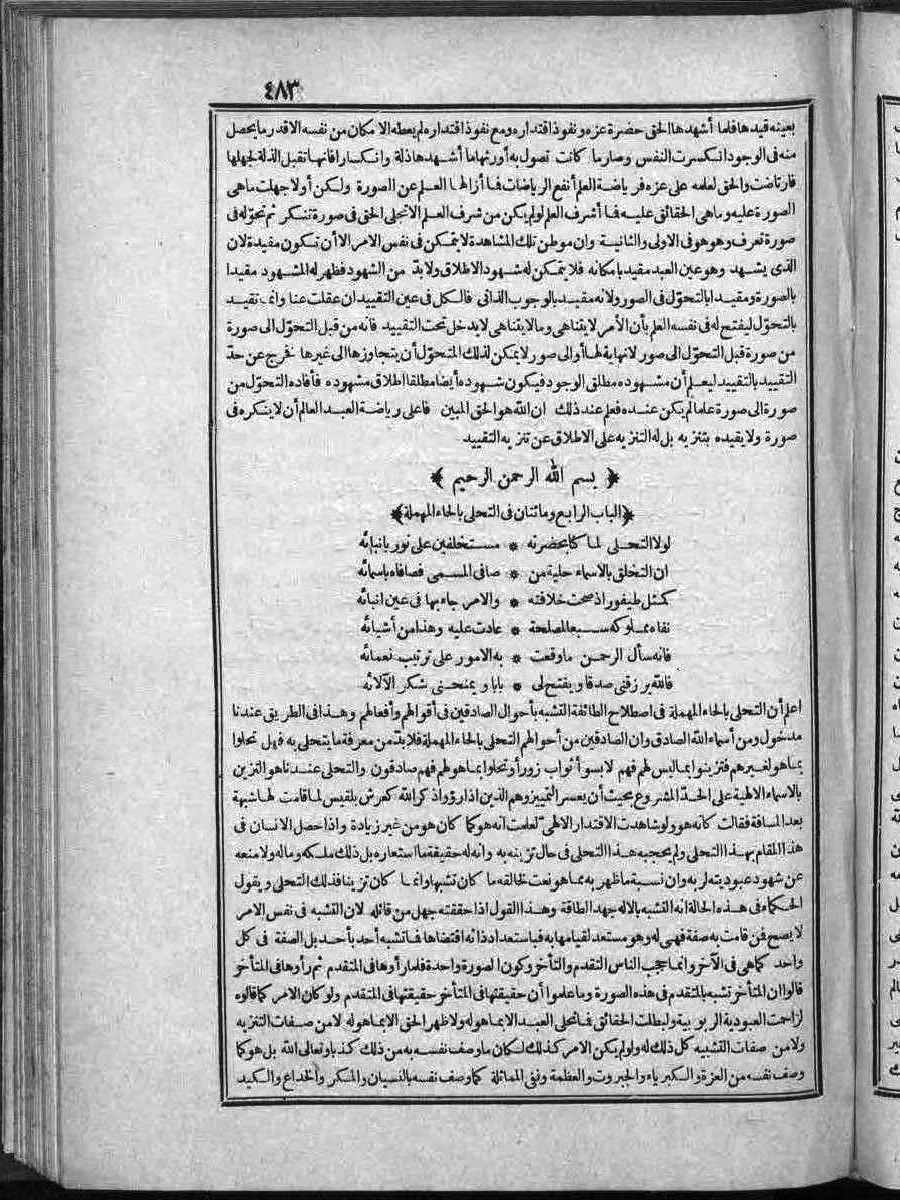 ٤٨٣
بعينه قيدها فلما أشهدها الحق حضرة عزه ونفوذ اقتداره ومع نفوذ اقتداره لم يعطه الامكان من نفسه الا قدر ما يحصل
منه فى الوجود انكسرت النفس وصار ما كانت تصول به أورثها ما أشهدها ذلة وانكسارا فانها تقبل الذلة لجهلها
فارتاضت والحق لعلمه على عزه فرياضة العلم أنفع الرياضات فما أزالها العلم عن الصورة ولكن أولا جهلت ماهى
الصورة عليه وماهى الحقائق عليه فما أشرف العلم لولم يكن من شرف العلم الا تجلى الحق فى صورة تنكر ثم تحوّله فى
صورة تعرف وهو هو فى الاولى والثانية وان موطن تلك المشاهدة لا يمكن فى نفس الامر الا أن تكون مقيدة لان
الذى يشهد وهو عين العبد مقيد بامكانه فلا يتمكن له شهود الاطلاق ولا بدّ من الشهود فظهر له المشهود مقيدا
بالصورة ومقيدا بالتحوّل فى الصور ولانه مقيد بالوجوب الذاتى فالكل فى عين التقييد ان عقلت عنا وانما تقيد
بالتحوّل ليفتح له فى نفسه العلم بأن الأمر لا يتناهى وما لا يتناهى لا يدخل تحت التقييد فانه من قبل التحوّل الى صورة
من صورة قبل التحوّل الى صور لا نهاية لها أو الى صور لا يمكن لذلك المتحوّل أن يتجاوزها الى غيرها فخرج عن حدّ
التقييد بالتقييد ليعلم أن مشهوده مطلق الوجود فيكون شهوده أيضا مطلقا اطلاق مشهوده فأفاده التحوّل من
صورة الى صورة علما لم يكن عنده فعلم عند ذلك ان الله هو الحق المبين فاعلى رياضة العبد العالم أن لا ينكره فى
صورة ولا يقيده بتنزيه بل له التنزيه على الاطلاق عن تنزيه التقييد
﴿ بسم الله الرحمن الرحيم ﴾
﴿الباب الرابع ومائتان فى التحلى بالحاء المهملة﴾
لولا التحلى لما كنا بحضرته * مستخلفين على نور بانبائه
ان التخلق بالاسماء حلية من * صافى المسمى فصافاه باسمائه
كمثل طيفور اذ صحت خلافته * والامر جاء بها فى عين انبائه
نفاه مملوكه سبعا لمصلحة * عادت عليه وهذا من أشيائه
فانه سأل الرحمن ما وقعت * به الامور على ترتيب نعمائه
فالله يرزقنى صدقا ويفتح لى * بابا ويمنحنى شكر الآلائه
اعلم أن التحلى بالحاء المهملة فى اصطلاح الطائفة التشبه بأحوال الصادقين فى أقوالهم وأفعالهم وهذا فى الطريق عندنا
مدخول ومن أسماء الله الصادق وان الصادقين من أحوالهم التحلى بالحاء المهملة فلا بدّ من معرفة ما يتحلى به فهل تحلوا
بما هو لغيرهم فتزينوا بما ليس لهم فهم لابسو أثواب زور أو تحلوا بما هو لهم فهم صادقون والتحلى عندنا هو التزين
بالاسماء الالهية على الحدّ المشروع بحيث أن يعسر التمييز وهم الذين اذا رؤوا ذكر الله كعرش بلقيس لما قامت لها شبهة
بعد المسافة فقالت كانه هو ولو شاهدت الاقتدار الالهىّ لعلمت أنه هو كما كان هو من غير زيادة واذا حصل الانسان فى
هذا المقام بهذا التحلى ولم يحجبه هذا التحلى فى حال تزينه به وانه له حقيقة ما استعاره بل ذلك ملكه وماله ولا منعه
عن شهود عبوديته لربه وان نسبة ما ظهر به مما هو نعت لخالقه ما كان تشبها وانما كان تزينا فذلك التحلى ويقول
الحكماء فى هذه الحالة انه التشبه بالاله جهد الطاقة وهذا القول اذا حققته جهل من قائله لان التشبه فى نفس الامر
لا يصح فمن قامت به صفة فهى له وهو مستعد لقيامها به فباستعداد ذاته اقتضاها فما تشبه أحد بأحد بل الصفة فى كل
واحد كما هى فى الآخر وانما حجب الناس التقدم والتأخر وكون الصورة واحدة فلما رأوها فى المتقدم ثم رأوها فى المتأخر
قالوا ان المتأخر تشبه بالمتقدم فى هذه الصورة وما علموا أن حقيقتها فى المتأخر حقيقتها فى المتقدم ولو كان الامر كما قالوه
لزاحمت العبودية الربوبية ولبطلت الحقائق فما تحلى العبد الا بما هو له ولا ظهر الحق الا بما هو له لا من صفات التنزيه
ولا من صفات التشبيه كل ذلك له ولو لم يكن الامر كذلك لكان ما وصف نفسه به من ذلك كذبا وتعالى الله بل هو كما
وصف نفسه من العزة والكبرياء والجبروت والعظمة ونفى المماثلة كما وصف نفسه بالنسيان والمكر والخداع والكيد